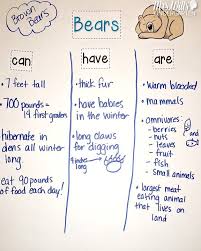 Brown
Bears
Bears
can
have
are
• 7 feet tall
• 700 pounds =
14 first graders
• hibernate in
dens all winter
long.
• eat 90 pounds
of food each day!
• thick fur
• have babies
in the winter
• long claws for
digging
4 inches
long
• warm blooded
• mammals
• omnivores
- berries
- nuts
- leaves
- fruit
- fish
- small animals
• largest meat
eating animal
that lives on
land